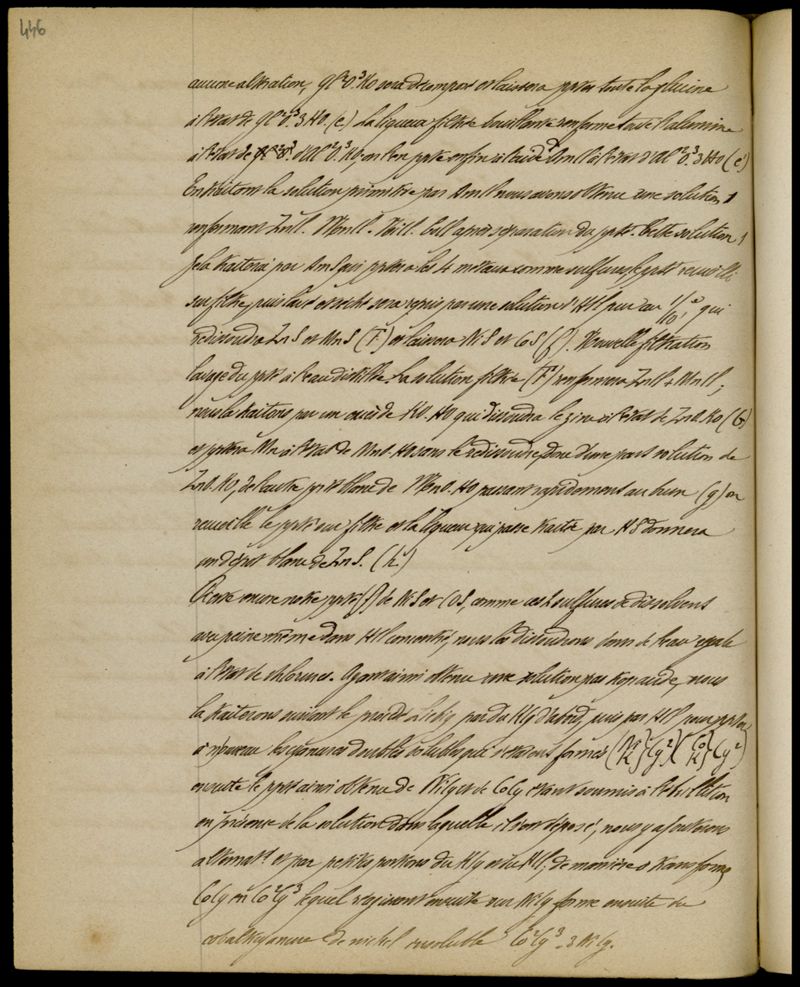 446
aucune altération, Gl²O³.Ko sera décomposé et laissera ppter toute la glucine
à l'état de Gl²O³.3HO. (e.) La liqueur filtrée bouillante renferme toute l'alumine
à l'état de d'Al²O³.Ko, on l'en ppte enfin à l'aide d' à l'état d'Al²O³.3HO (e')
En traitant la solution primitive par nous avons obtenu une solution 1
renfermant après séparation du ppté. Cette solution 1
je la traiterai par AmS qui pptera les 4 métaux comme sulfures, le ppté recueilli
sur filtre, puis lavé et séché sera repris par une solution d'HCl pur au 1/10e, qui
redissoudra ZnS et MnS (F) et laissera NiS et CoS (f). Nouvelle filtration
lavage du ppté à l'eau distillée. La solution filtrée (F) renfermera ZnCl & MnCl;
nous la traitons par un excès de KO.HO qui dissoudra le zinc à l'état de ZnO.Ko (G)
et pptera Mn à l'état de MnO.HO sans le redissoudre, donc d'une part solution de
ZnO.Ko, de l'autre ppté blanc de MnO.HO passant rapidement au brun (g) on
recueille le ppté sur filtre et la liqueur qui passe traitée par HS donnera
un dépôt blanc de ZnS. (h.)
Reste encore notre ppté (f) de NiS et CoS, comme ces 2 sulfures se dissolvent
avec peine même dans HCl concentré, nous les dissoudrons dans de l'eau régale
à l'état de chlorures. Ayant ainsi obtenu une solution pas trop acide, nous
la traiterons suivant le procédé Liebig par du KCy d'abord, puis par HCl pour ppter
à nouveau les cyanures doubles solubles qui s'étaient formés (Ni K} Cy²)(Co K} Cy²)
ensuite le ppté ainsi obtenu de NiCy et de CoCy étant soumis à l'ébullition
en présence de la solution dans laquelle il s'est déposé, nous y ajouterons
alternatt et par petites portions du KCy et du HCl, de manière à transformer
CoCy en Co²Cy³ lequel réagissant ensuite sur NiCy forme ensuite du
cobalticyanure de nickel insoluble Co²Cy³.3NiCy.